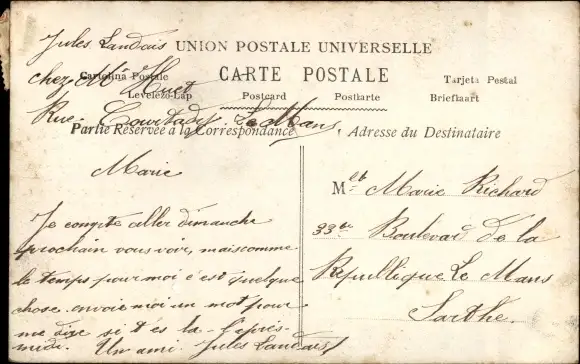 Jules Landais
UNION POSTALE UNIVERSELLE
chez Mr Huet
CARTE POSTALE
Cartolina Postale
Tarjeta Postal
Levelezö-Lap
Postcard
Postkarte
Briefkaart
Rue Le Mans
Partie Réservée à la Correspondance
Adresse du Destinataire
Marie
Je compte aller dimanche
prochain vous voir, mais comme
le temps pour moi c'est quelque
chose. envoie moi un mot pour
me dire si t'es la l'après-
midi. Un ami Jules Landais
Mlle Marie Richard
33 Boulevard de la
République Le Mans
Sarthe.